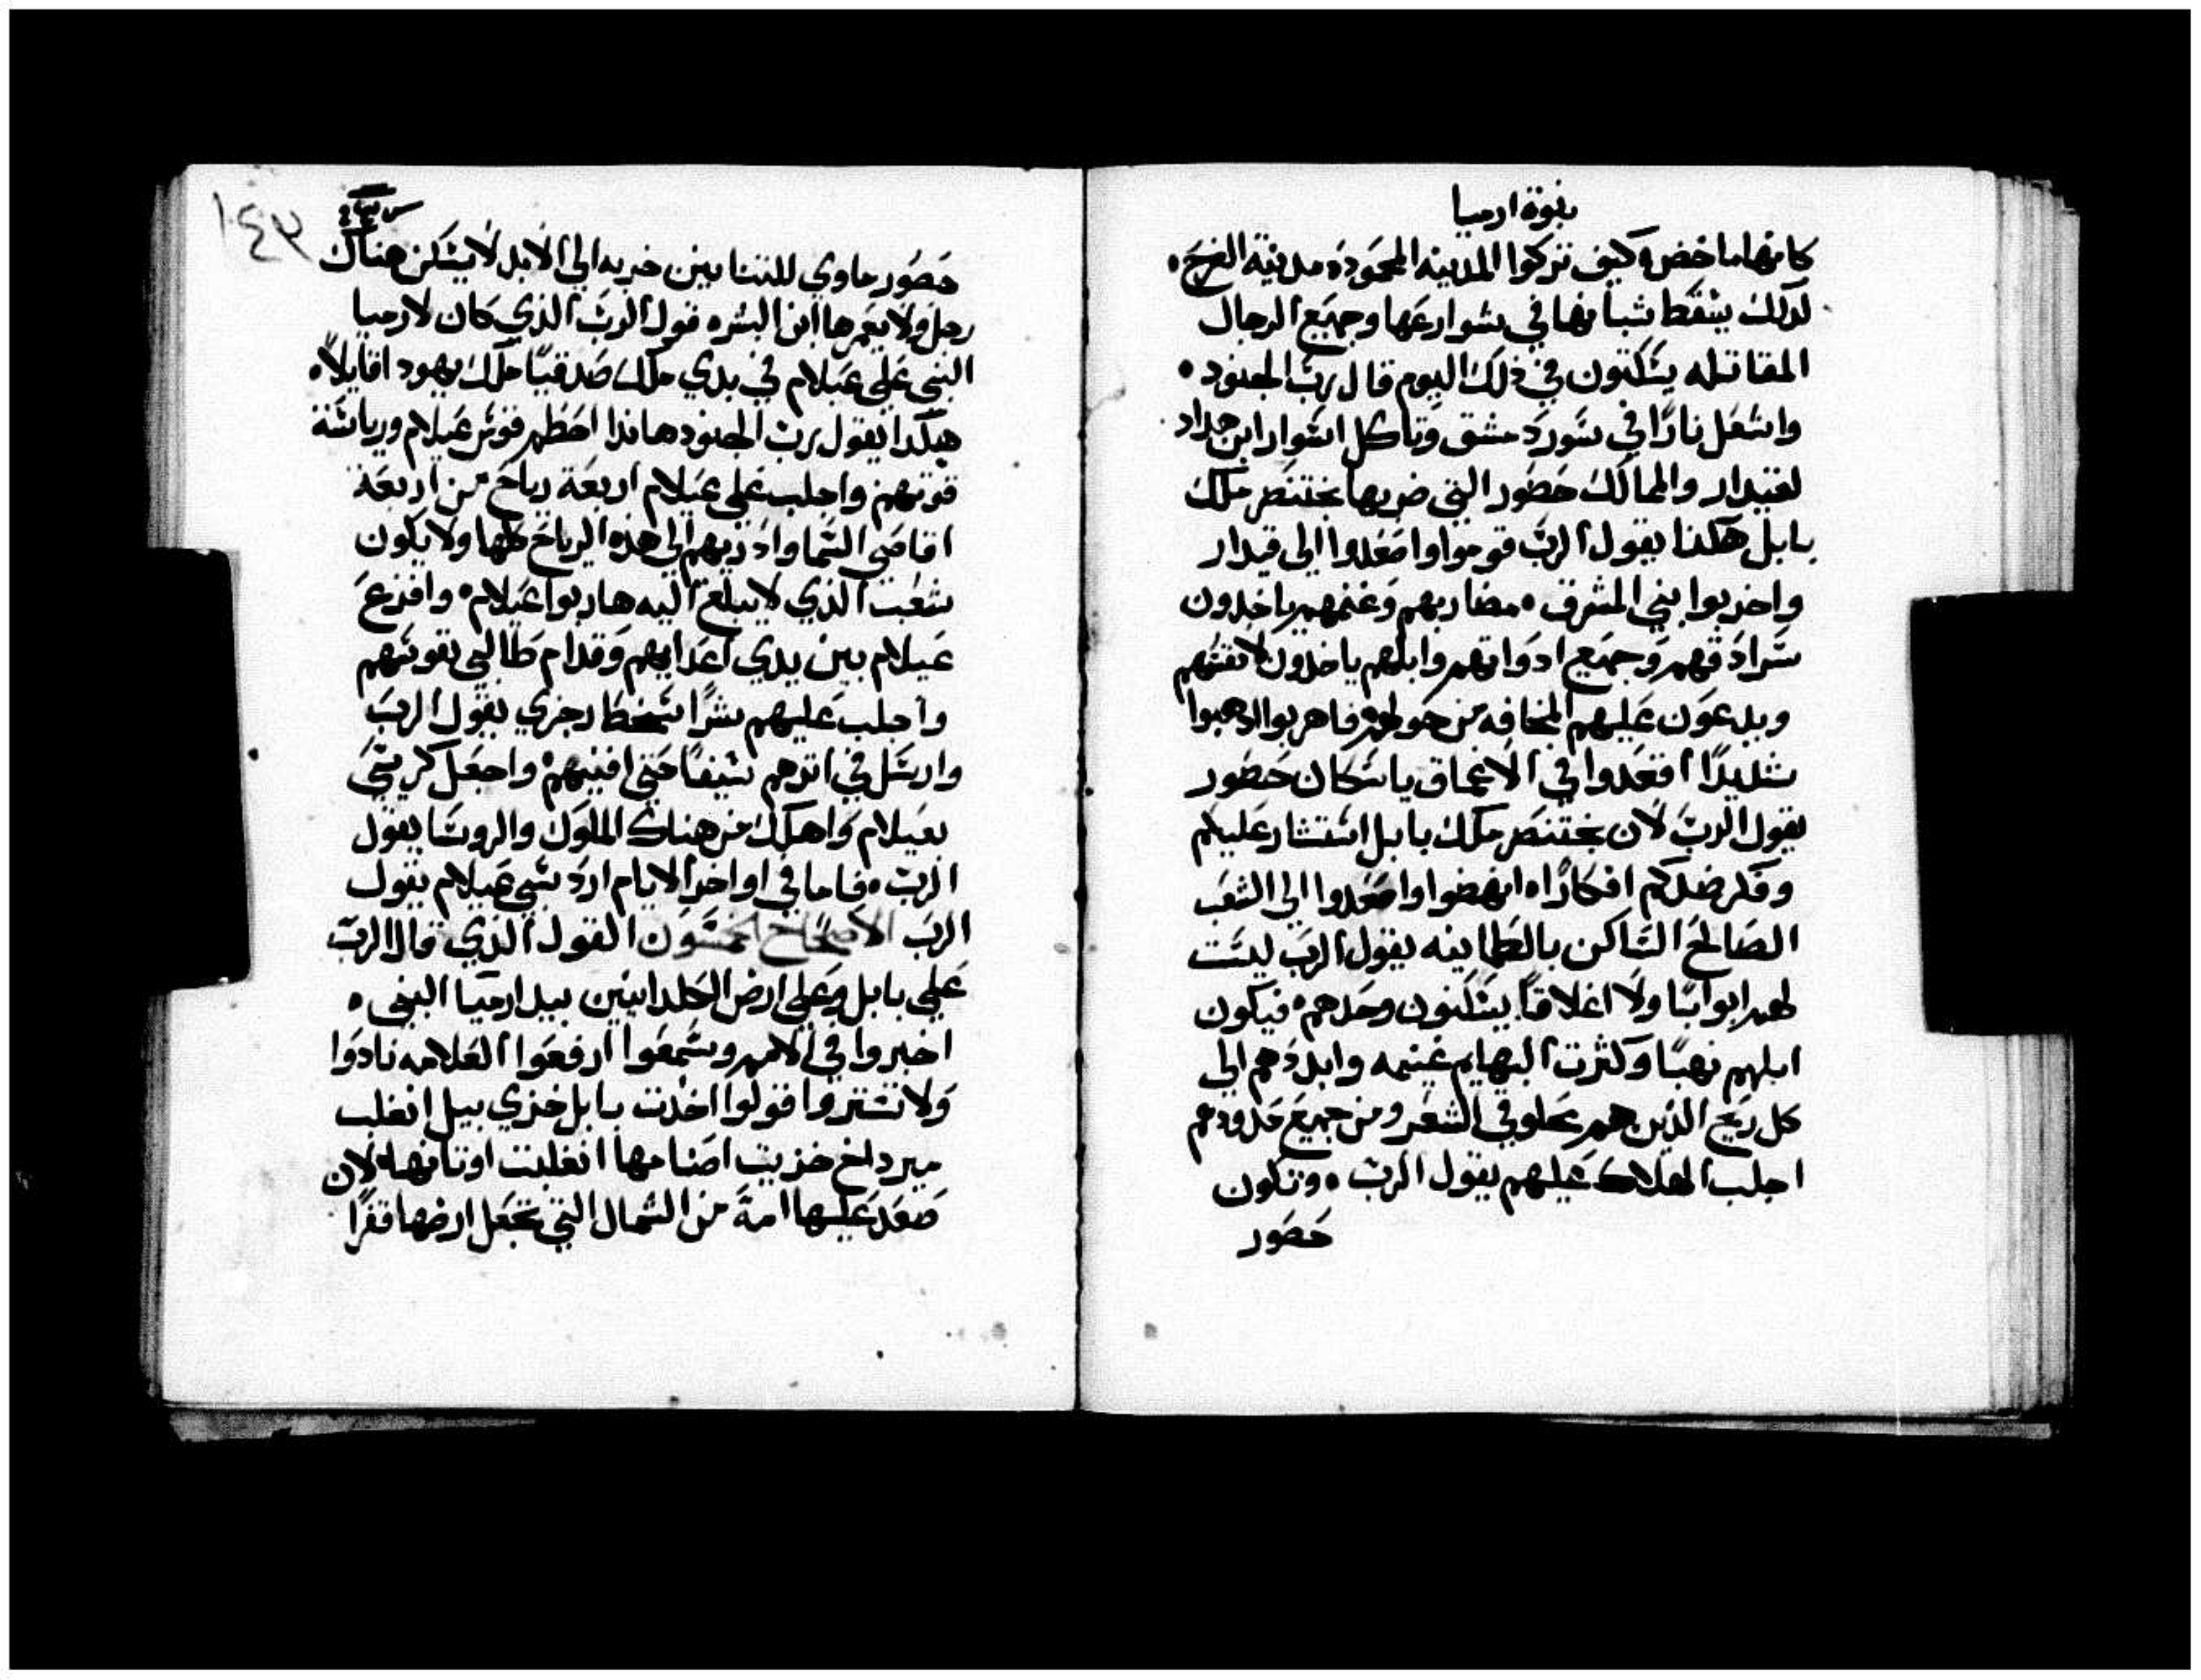 نبوة ارميا
كانها ماخض ه كيف تركوا المدينه المحموده مدينة الفرح ه
لدلك يسقط شبانها في شوارعها وجميع الرجال
المقاتله يسكتون في ذلك اليوم قال رب الجنود ه
واشعل نارًا في سور دمشق وتاكل اسوار ابن هداد
لقيدار والممالك حصور التي ضربها بختنصر ملك
بابل هكدا يقول الرب قوموا واصعدوا الى قيدار
واخربوا بني المشرق ه مضاربهم وغنمهم ياخدون
سرادقهم وجميع ادواتهم وابلهم ياخدون لانفسهم
ويدعون عليهم المخافه من حولهم فاهربوا ادهبوا
شديدًا اقعدوا في الاعماق ياسكان حصور
يقول الرب لان بختنصر ملك بابل استشار عليكم
وفكر ضدكم افكارًا ه انهضوا واصعدوا الى الشعب
الصالح الساكن بالطمانينه يقول الرب ليست
لهم ابوابًا ولا اغلاقًا يسكنون وحدهم ه فيكون
ابلهم نهبًا وكثرت البهايم غنيمه وابددهم الى
كل ريح الذين هم محلوقي الشعر ومن جميع حدودهم
اجلب الهلاك عليهم يقول الرب ه وتكون
حصور
١٤٣
حصور ماوي للتنانين خربه الى الابد لا يسكن هناك
رجل ولا يعمرها ابن البشر ه قول الرب الذي كان لارميا
النبي على عيلام في بدي ملك صدقيا ملك يهود اقايلاً ه
هكدا يقول رب الجنود هانذا احطم قوس عيلام ورياسة
قوتهم واجلب على عيلام اربعة رياح من اربعة
اقاصي السما واذريهم الى هذه الرياح كلها ولا يكون
شعب الذي لا يبلغ اليه هاربوا عيلام ه وافزع
عيلام بين يدي اعدايهم وقدام طالبي نفوسهم
واجلب عليهم شرًا سخط رجزي يقول الرب
وارسل في اثرهم سيفًا حتى افنيهم ه واجعل كرسي
بعيلام واهلك من هناك الملوك والروسا يقول
الرب ه فاما في اواخر الايام ارد سبي عيلام يقول
الرب الاصحاح الخمسون القول الذي قال الرب
على بابل وعلى ارض الكلدانيين بيد ارميا النبي ه
اخبروا في الامم وسمعوا ارفعوا العلامه نادوا
ولا تستروا قولوا اخدت بابل خزي بيل انغلب
ميردخ خزيت اصنامها انغلبت اوثانها لان
صعد عليها امة من الشمال التي تجعل ارضها قفرًا